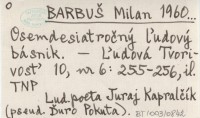 BARBUŠ Milan 1960...
Osemdesiatročný ľudový
básnik. – Ľudová Tvori-
vosť 10, nr 6: 255-256, il.
TNP
Lud. poeta Juraj Kapralčik
(pseud. Ďuro Pokuta).